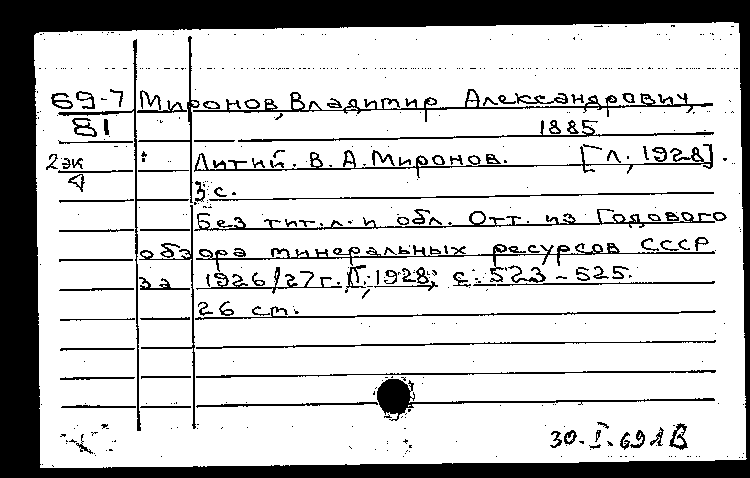 69-7 Миронов, Владимир Александрович,
81 1885
2 эк Литий. В. А. Миронов. [Л., 1928].
3 с.
Без тит. л. и обл. Отт. из Годового
обзора минеральных ресурсов СССР
за 1926/27 г. Л., 1928, с. 523-525.
26 см.
30.I.69